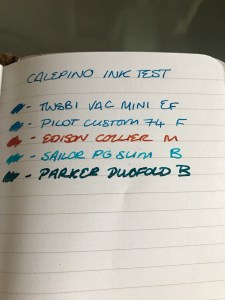 CALEPINO INK TEST
- TWSBI VAC MINI EF
- PILOT CUSTOM 74 F
- EDISON COLLIER M
- SAILOR PG SLIM B
- PARKER DUOFOLD B